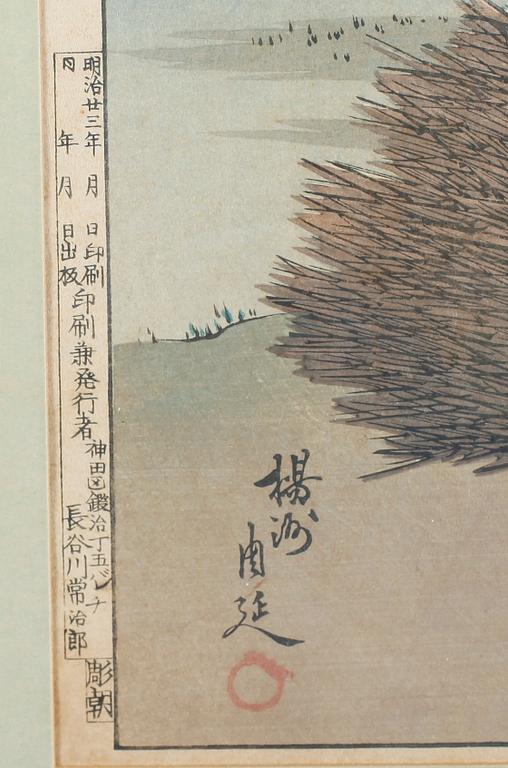 明治廿三年 月 日印刷
同 年 月 日出板
印刷兼発行者
神田区鍛冶丁五バンチ
長谷川常治郎
彫朝
楊洲
周延